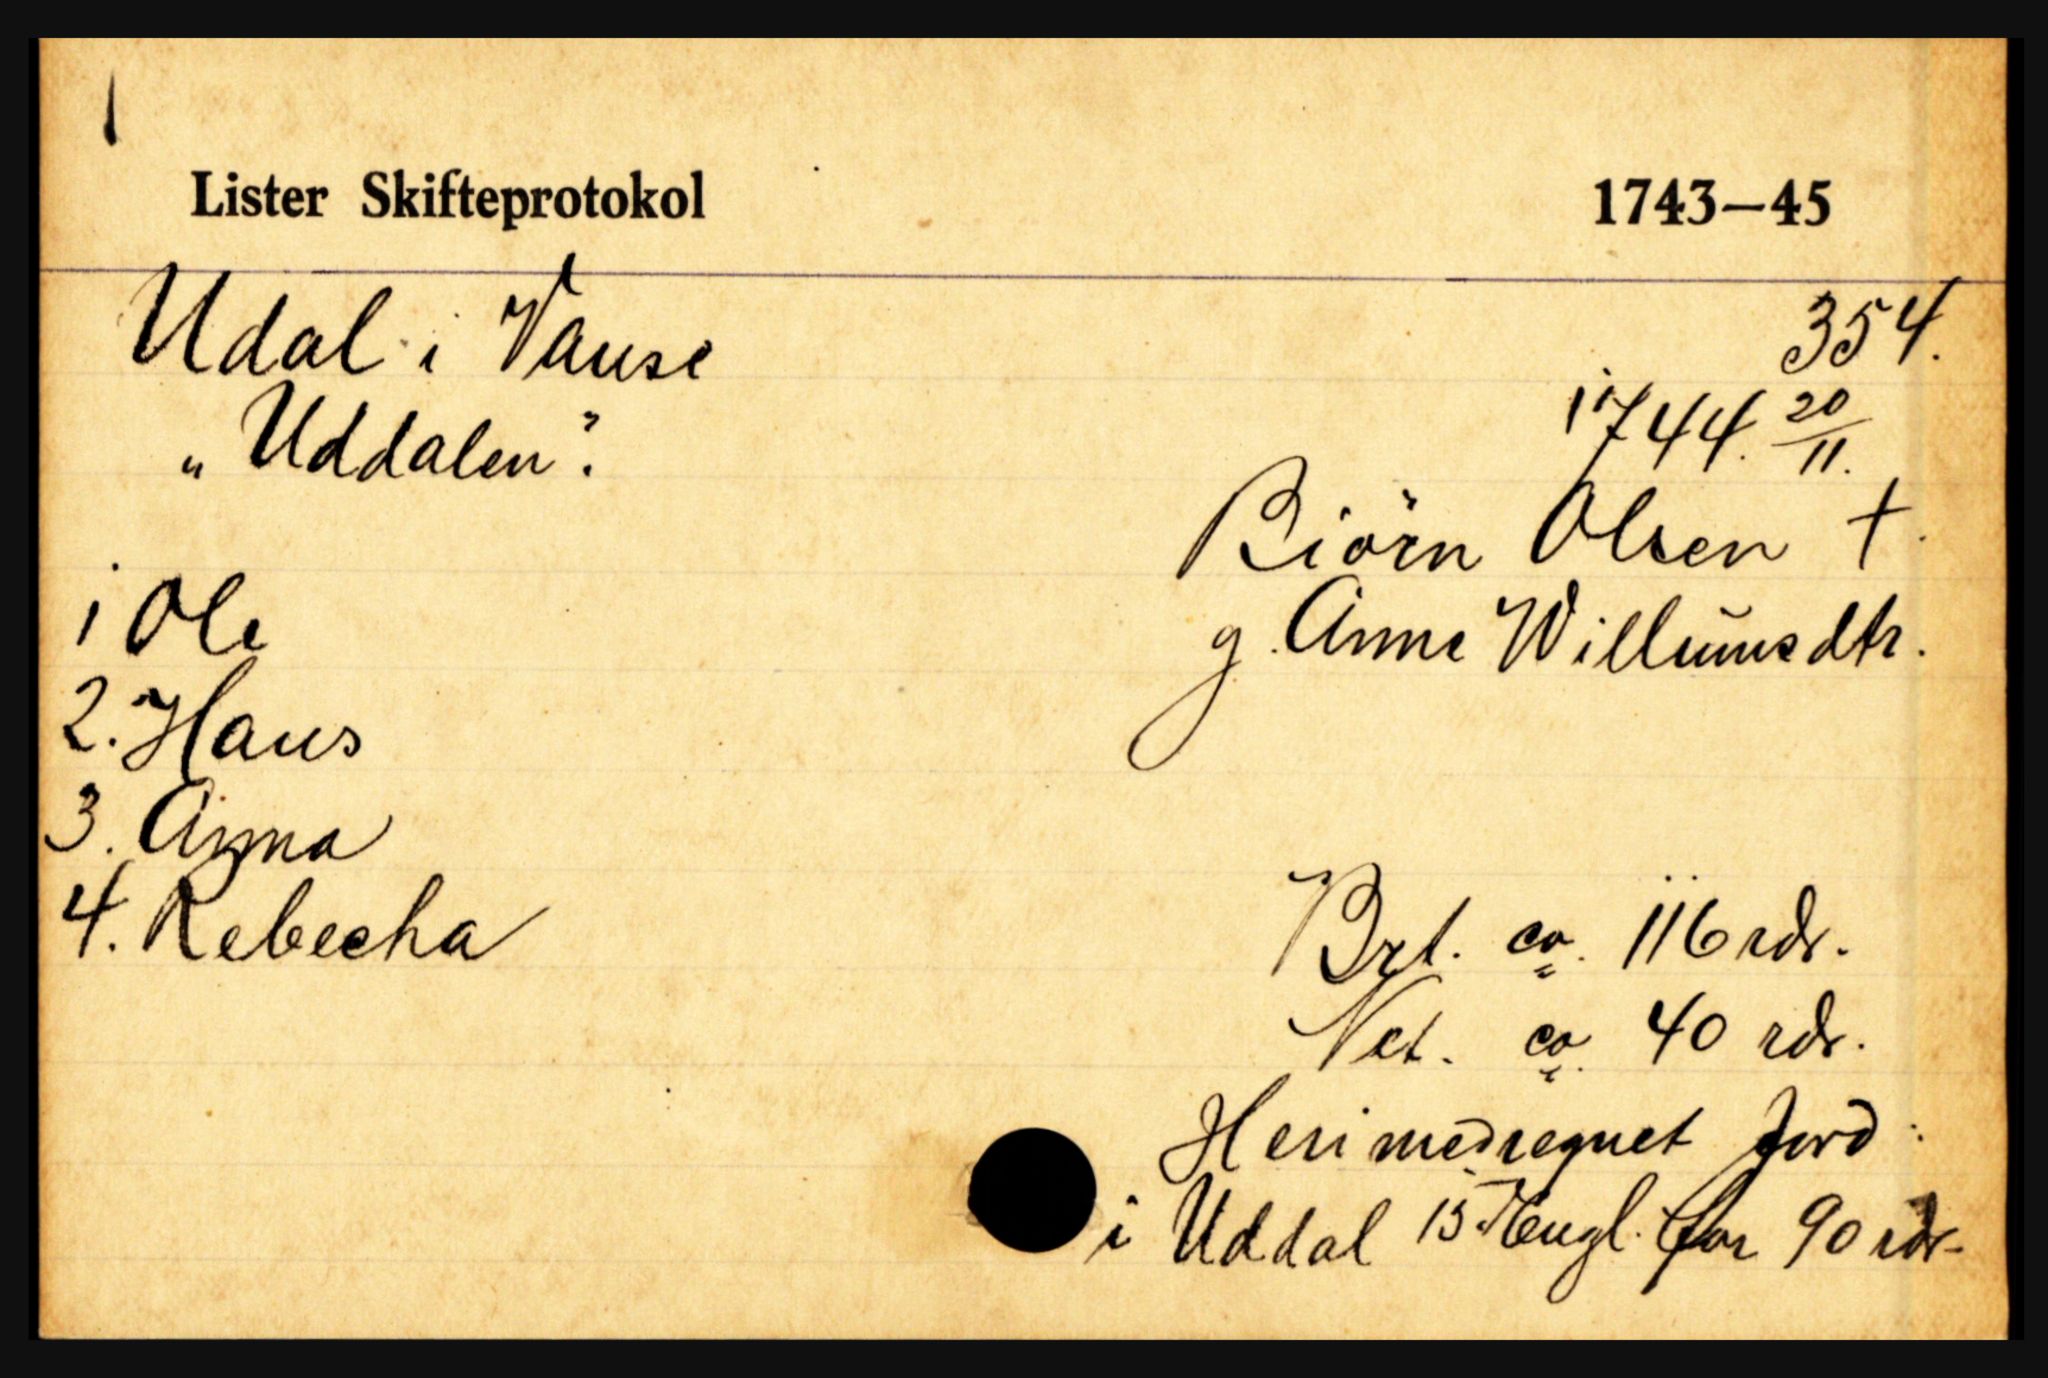 1
Lister Skifteprotokol 1743—45
Udal i Vanse 354.
„Uddalen". 1744. 20/11.
Biörn Olsen †.
1 Ole g. Anne Willumsdtr.
2. Hans
3. Anna
4. Rebecha Brt. ca. 116 rdr.
Net. ca. 40 rdr.
Heri medregnet Jord
i Uddal 15 Engl. for 90 rdr.